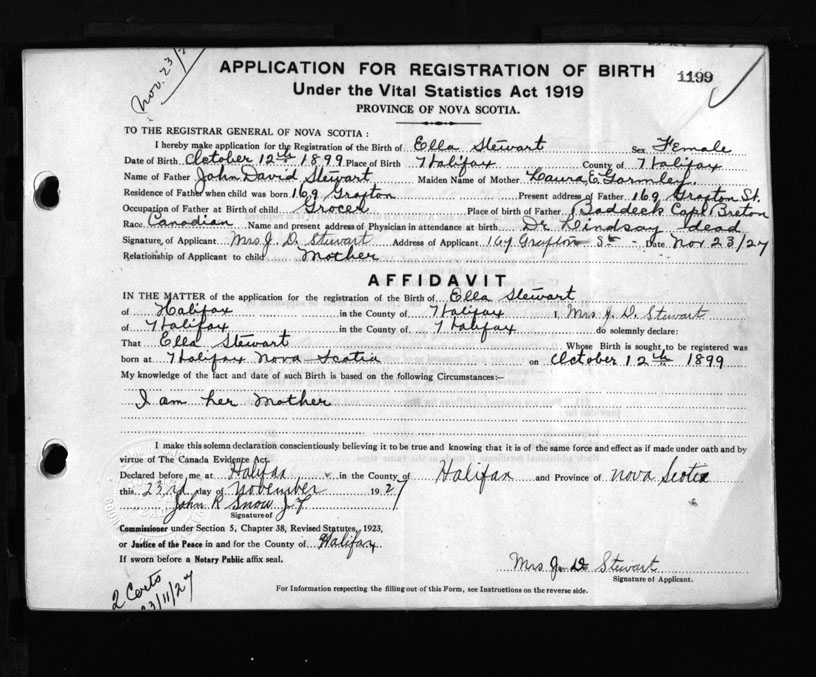 Nov. 23/2
APPLICATION FOR REGISTRATION OF BIRTH
1199
Under the Vital Statistics Act 1919
PROVINCE OF NOVA SCOTIA.
TO THE REGISTRAR GENERAL OF NOVA SCOTIA :
I hereby make application for the Registration of the Birth of Ella Stewart Sex Female
Date of Birth October 12th 1899 Place of Birth Halifax County of Halifax
Name of Father John David Stewart Maiden Name of Mother Laura E. Gormley
Residence of Father when child was born 169 Grafton Present address of Father 169 Grafton St.
Occupation of Father at Birth of child Grocer Place of birth of Father Baddeck Cape Breton
Race Canadian Name and present address of Physician in attendance at birth Dr Lindsay dead
Signature of Applicant Mrs. J. D. Stewart Address of Applicant 169 Grafton St - Date Nov 23/27
Relationship of Applicant to child Mother
AFFIDAVIT
IN THE MATTER of the application for the registration of the Birth of Ella Stewart
of Halifax in the County of Halifax I, Mrs J. D. Stewart
of Halifax in the County of Halifax do solemnly declare:
That Ella Stewart Whose Birth is sought to be registered was
born at Halifax Nova Scotia on October 12th 1899
My knowledge of the fact and date of such Birth is based on the following Circumstances:—
I am her Mother
I make this solemn declaration conscientiously believing it to be true and knowing that it is of the same force and effect as if made under oath and by
virtue of The Canada Evidence Act.
Declared before me at Halifax in the County of Halifax and Province of Nova Scotia
this 23rd day of November 1927
John R Snow J.P.
Signature of
Commissioner under Section 5, Chapter 38, Revised Statutes, 1923,
or Justice of the Peace in and for the County of Halifax
If sworn before a Notary Public affix seal.
Mrs J. D. Stewart
Signature of Applicant.
2 Certs
23/11/27
For Information respecting the filling out of this Form, see Instructions on the reverse side.